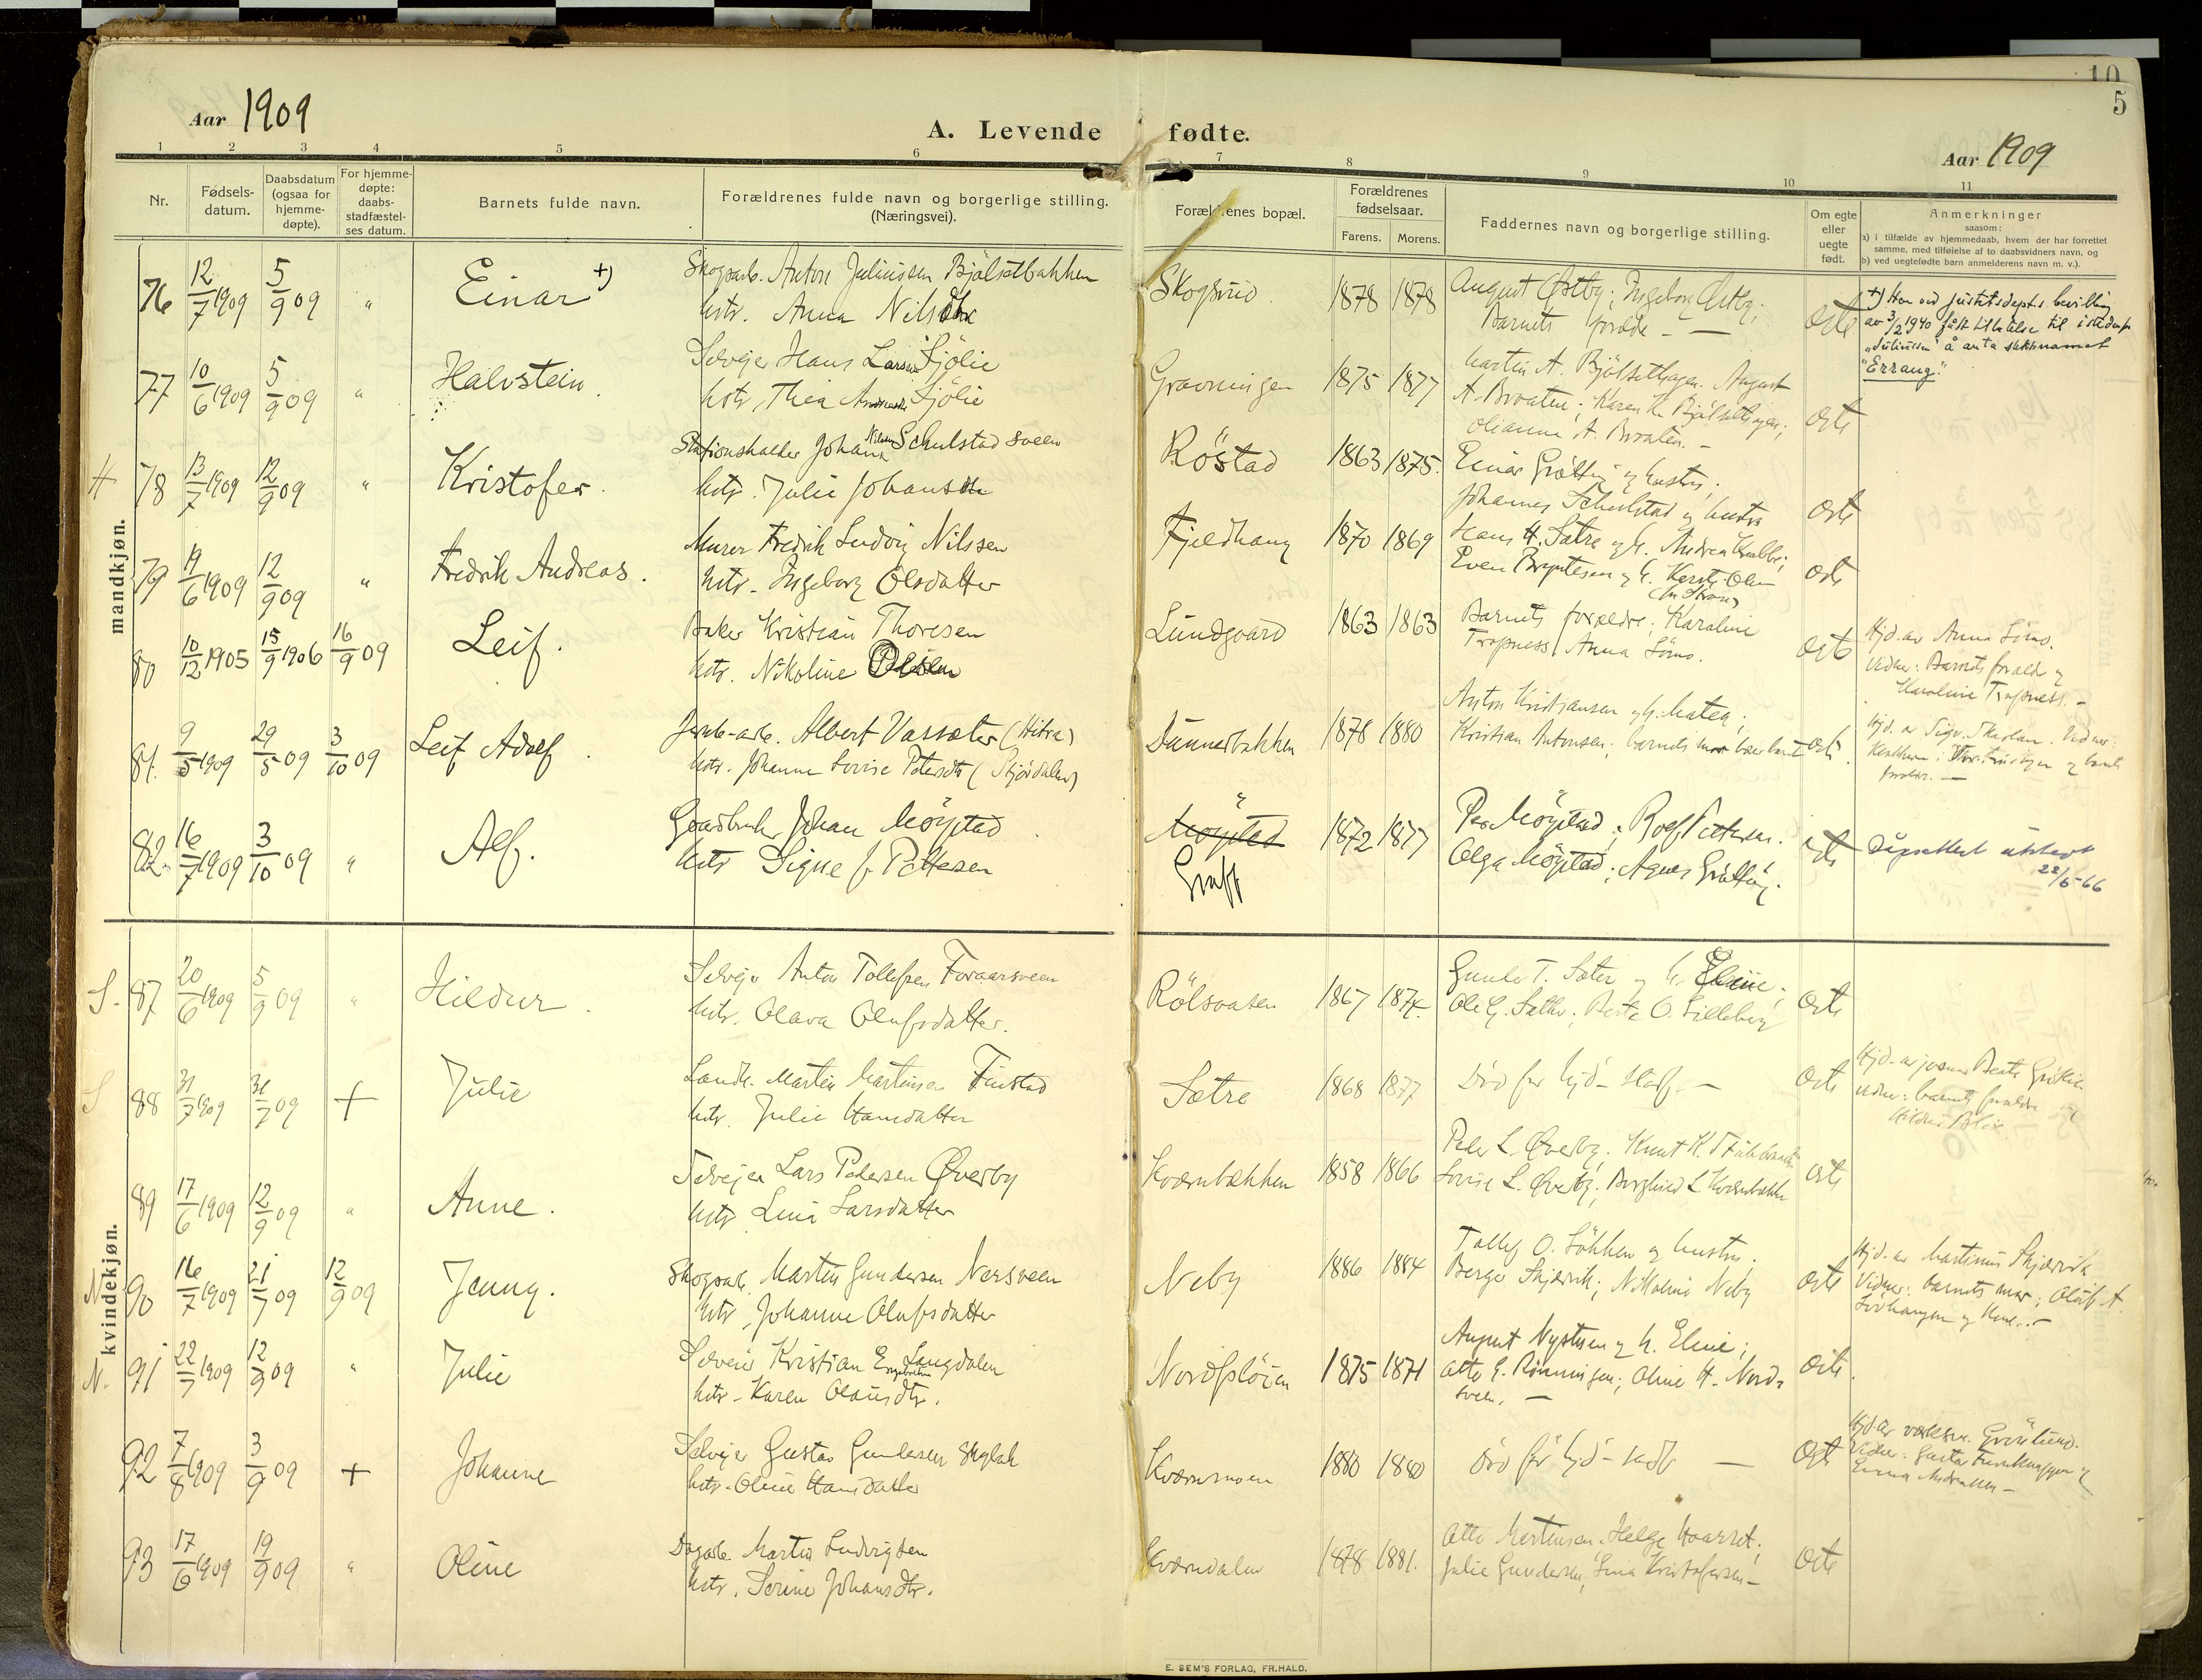 10
5
Aar 1909
A. Levende fødte.
Aar 1909
1 2 3 4 5 6 7 8 9 10 11
Nr.
Fødsels-
datum.
Daabsdatum
(ogsaa for
hjemme-
døpte).
For hjemme-
døpte:
daabs-
stadfæstel-
ses datum.
Barnets fulde navn.
Forældrenes fulde navn og borgerlige stilling.
(Næringsvei).
Forældrenes bopæl.
Forældrenes
fødselsaar.
Farens. Morens.
Faddernes navn og borgerlige stilling.
Om egte
eller
uegte
født.
Anmerkninger
saasom:
a) i tilfælde av hjemmedaab, hvem der har forrettet
samme, med tilføielse af to daabsvidners navn, og
b) ved uegtefødte barn anmelderens navn m. v.).
mandkjøn.
76 12/7 1909 5/9 09 " Einar +)
Skogsarb. Anton Juliussen Bjølsetbakken
hstr. Anna Nilsdtr
Skogsrud 1878 1878
August Østby; Ingeborg Østby;
Barnets foreldr. —
egte
+) Har ved justitsdepts bevilling
av 3/2 1940 fått tillatelse til istedenfor
"Juliussen" å anta slektsnamnet
"Errang."
77 10/6 1909 5/9 09 " Halvstein
Selveier Hans Larsen Sjølie
hstr. Thea Sjølie
Gravningen 1875 1877
Martin A. Bjølsethagen. August
A. Braaten; Karen K. Bjølsethagen;
Olianna A. Braaten. —
egte
H 78 13/7 1909 12/9 09 " Kristofer.
Stationsholder Johan Nilsen Schulstad Sveen
hstr. Julie Johansdtr
Röstad 1863 1875.
Einar Grötting og hustru;
Johannes Schulstad og hustru
egte
79 19/6 1909 12/9 09 " Fredrik Andreas.
Murer Fredrik Ludvig Nilssen
hstr. Ingeborg Olsdatter
Fjeldhaug 1870 1869
Hans H. Sætre og h. Andrea
Even Bryntesen og h. Kersti Olsen
egte
80 10/12 1905 15/9 1906 16/9 09 Leif.
Baker Kristian Thoresen
hstr. Nikoline
Lundgaard 1863 1863
Barnets forældre; Karoline
Tropness; Anna Lömo.
egte
Hjd. av Anna Lömo.
Vidner: Barnets foreldre og
Karoline Tropness. —
81. 9/5 1909 29/5 09 3/10 09 Leif Adolf.
Jernb-arb. Albert Vassæter (Hitra)
hstr. Johanne Lovise Petersdtr (Stjördalen)
Dunnerbakken 1878 1880
Anton Kristiansen og h. Matea;
Kristian Antonsen; barnets mor bar barnet
egte.
82. 16/7 1909 3/10 09 " Alf.
Gaardbruker Johan Möystad
hstr Signe f. Pettersen
Möystad
1872 1877
Per Möystad; Rolf Pettersen.
Olga Möystad; Agnes Grötting.
egte
Dåpsattest utskrevet
22/6-66
kvindekjøn.
S. 87 20/6 1909 5/9 09 " Hildur.
Selveier Anton Tollefsen Foraarsveen
hstr. Olava Olufsdatter.
Rölsvaasen 1867 1874.
Gunder T. Sæter og h. Eline;
Ole G. Sæther; Berte O. Lilleberg
egte
S 88 31/7 1909 31/7 09 + Julie
Landh. Martin Martinsen Finstad
hstr. Julie Hansdatter
Sætre 1868 1877
Död før hjd-stadf. —
egte
Hjd. av jordmor Beate
Vidner: barnets foreldre og
89 17/6 1909 12/9 09 " Anne.
Selveier Lars Pedersen Øverby
hstr Lina Larsdatter
Kværnbækken 1858 1866
Peder L. Øverby; Knut K.
Lovise L. Øverby; Borghild L. Kværnbække
egte
N. 90 16/7 1909 21/7 09 12/9 09 Jenny.
Skogsarb. Martin Gundersen Nersveen
hstr. Johanne Olufsdatter
Neby 1886 1884
Tollef O. Løkken og hustru.
Berge Skjærvik; Nikoline Neby
egte
Hjd. av Martinus Skjærvik
Vidner: barnets mor; Oluf A.
91 22/7 1909 12/9 09 " Julie
N.
Selveier Kristian Langdalen
hstr. Karen Olausdtr.
Nordslöien 1875 1871
August Nystuen og h. Eline;
Otto E. Rönningen; Oline H. Nord-
sveen. —
egte.
92 7/8 1909 3/9 09 + Johanne
Selveier Gustav Gundersen
hstr. Oline Hansdatter
Kværnmoen 1880 1880
Död før hjd-stadf —
egte
93 17/6 1909 19/9 09 " Oline
Dagarb. Martin Ludvigsen
hstr. Serine Johansdtr.
Kværndalen 1878 1881.
Otto Mortensen. Helge Haarset;
Julie Gundersen; Lina Kristofersen —
egte
E. SEM'S FORLAG, FR.HALD.